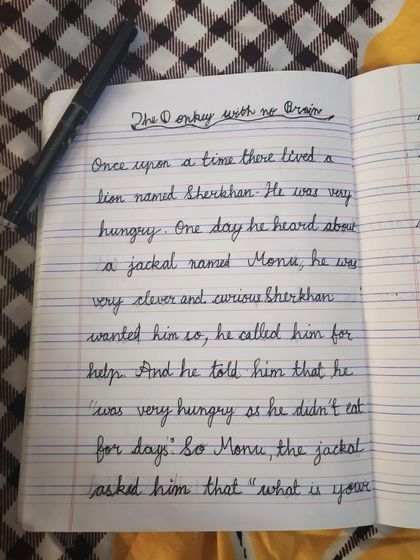 The Donkey with no Brain
Once upon a time there lived a
lion named Sherkhan. He was very
hungry. One day he heard about
a jackal named Monu, he was
very clever and curious Sherkhan
wanted him so, he called him for
help. And he told him that he
"was very hungry as he didn't eat
for days". So Monu, the jackal
asked him that "what is your